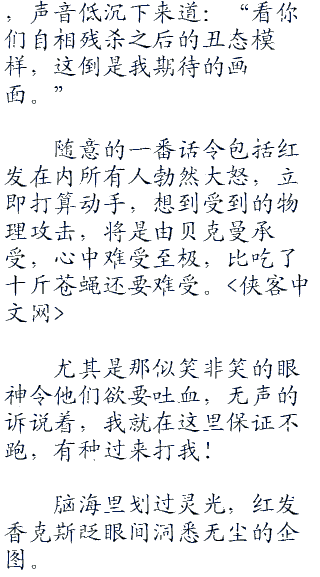 ，声音低沉下来道：“看你
们自相残杀之后的丑态模
样，这倒是我期待的画
面。”
随意的一番话令包括红
发在内所有人勃然大怒，立
即打算动手，想到受到的物
理攻击，将是由贝克曼承
受，心中难受至极，比吃了
十斤苍蝇还要难受。<侠客中
文网>
尤其是那似笑非笑的眼
神令他们欲要吐血，无声的
诉说着，我就在这里保证不
跑，有种过来打我！
脑海里划过灵光，红发
香克斯眨眼间洞悉无尘的企
图。